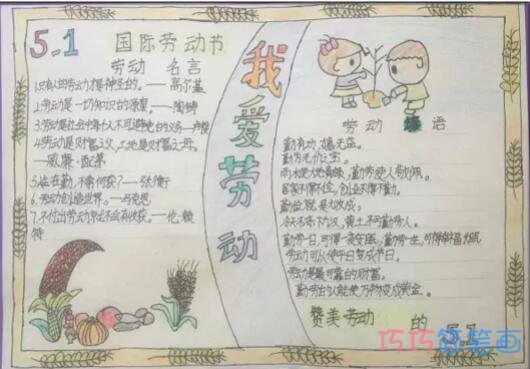 5.1 国际劳动节
劳动 名言
1.只有人的劳动才是神圣的。——高尔基
2.劳动是一切知识的源泉。——陶铸
3.劳动是社会中每个人不可避免的义务——卢梭
4.劳动是财富之父,土地是财富之母。
——威廉·配第
5.人生在勤,不索何获?——张衡
6.劳动创造世界。——马克思
7.不付出劳动就不会有收获。——伦
特
我爱劳动
劳动 语
勤有功,嬉无益。
勤为无价之宝。
富家不得不俭,创业不得不勤。
勤劳一日,可得一夜安眠;勤劳一生,可得幸福长眠
劳动可以使平日变成节日。
劳动是最可靠的财富。
赞美劳动 的 5.1
巧巧简笔画